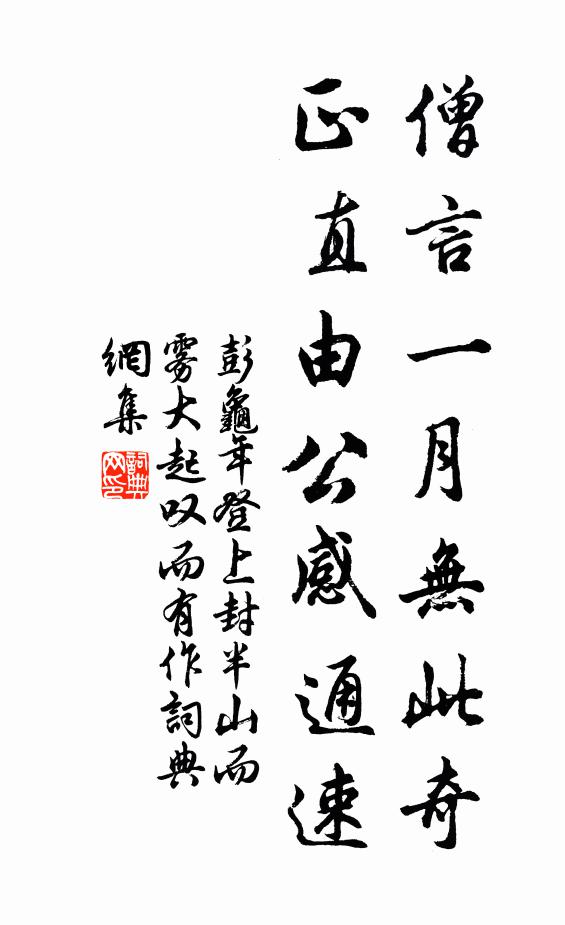 僧言一月無此奇
正直由公感通速
彭龜年登上封半山而
雾大起叹而有作詞典
網集
詞典網印